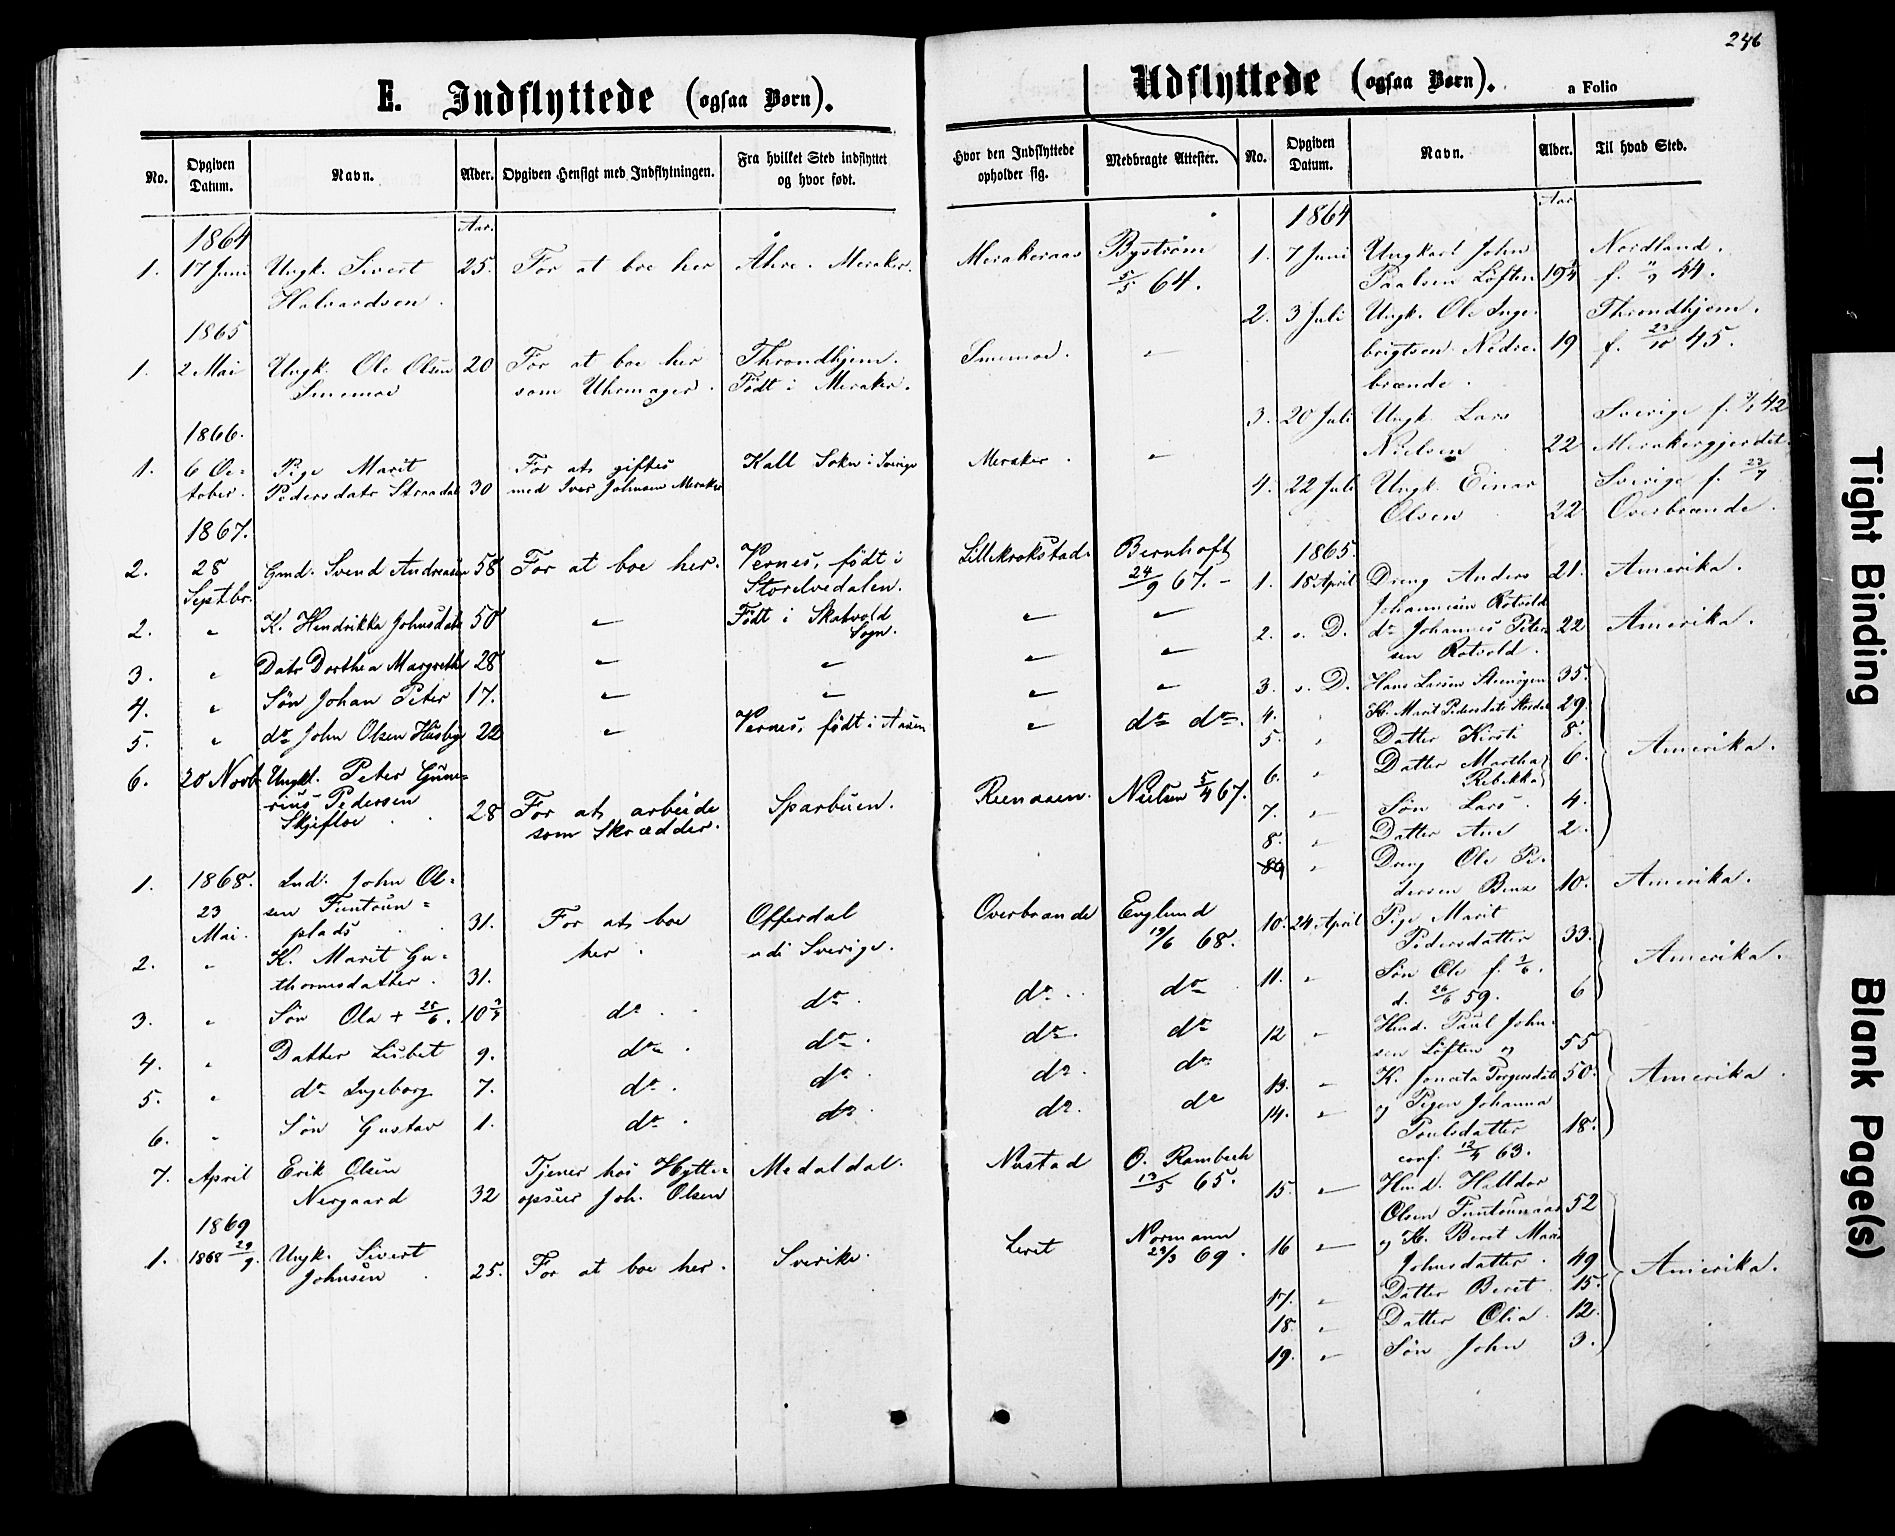 246
E. Indflyttede (ogsaa Børn).
No. Opgiven Datum. Navn. Alder. Opgiven Hensigt med Indflytningen. Fra hvilket Sted indflyttet og hvor født. Hvor den Indflyttede opholder sig. Medbragte Attester.
Aar.
1864
1. 17 Juni Ungk. Sivert 25. For at boe her Åhre. Meraker. Merakeraas Byström
Halvardsen. 5/5 64.
1865
1. 2 Mai Ungk. Ole Olsen 20 For at boe her Throndhjem. Smemoe. "
Smemoe som Uhrmager. Født i Meraker.
1866.
1. 6 Oc- Pige Marit For at giftes Kall Sokn i Sverige Meraker. "
tober. Pedersdatr Straadal 30 med Iver Johnsen Meraker
1867.
2. 28 Gmd. Svend Andreasen 58 For at boe her. Vernes, født i Lillekrokstad. Bernhoft
Septbr. Stordvedalen. 24/9 67. -
2. " K. Hendrikka Johnsdatr 50 " Født i Skatvold " "
Sogn.
3. " Datr Dorthea Margrethe 28 " " " "
4. " Søn Johan Peter 17. " " " "
5. " do John Olsen Husby 22 " Vernes, født i Aasen " do do.
6. 20 Novb. Ungk. Peter Gune-
rius Pedersen
Skjefloe 28 For at arbeide Sparbuen. Reenaasen. Nielsen 5/4 67.
som Skrædder.
1. 1868. Ind. John Ol-
23 sen Funtoun-
Mai. plads 31. For at boe Offerdal Overbrænde Englund
her. udi Sverige. 19/6 68.
2. " K. Marit Gu-
thormsdatter. 31.
3. " Søn Ola + 25/6. 10 3/4 do do. do. do
4. " Datter Lisbet 9. do. do. do. do
5. " do Ingeborg 7. do. do. do. do
6. " Søn Gustav 1. do. do. do. do
7. April Erik Olsen Tjener hos Hytte- Medaldal. Nustad O. Rambech
Nergaard 32 opsier Joh. Olsen 13/5 65.
1869
1. 1868 29/9. Ungk. Sivert Leret Normann
Johnsen 25. For at boe her. Sverike. 29/3 69.
Udflyttede (ogsaa Børn). a Folio
No. Opgiven Datum. Navn. Alder. Til hvad Sted.
Aar
1864
1. 7 Juni Ungkarl John Nordland.
Paalsen Løften 19 3/4 f. "/9 44.
2. 3 Juli Ungk. Ole Inge- Throndhjem.
brigtsen Nedre- 19 f. 23/10 45.
brænde.
3. 20 Juli Ungk. Lars Sverige f. 42
Nielsen 22 Merakergjerdet
4. 22 Juli Ungk. Einar Sverige f. 23/7
Olsen 22 Overbrænde.
1865.
1. 18 April Dreng Anders 21. Amerika.
Johannesen Rotvold
2. s. D. do Johannes Peter- 22 Amerika.
sen Rotvold.
3. s. D. Hans Larsen 35.
4. " K. Marit Pedersdatr 29.
5. " Datter Kirsti 8. Amerika.
6. " Datter Martha 6.
Rebekka
7. " Søn Lars 4.
8. " Datter Ane 2.
9 " Dreng Ole Pe-
dersen 10. Amerika.
10. 24 April Pige Marit
Pedersdatter 33. Amerika.
11. " Søn Ole f. 3/6.
d. 26/6 59. 6
12 " Hmd. Paul John-
sen Løften og 55
13. " K. Jonetta Torgersdatr 50. Amerika.
14. " og Pigen Johanna
Poulsdatter 18.
conf. 12/4 63.
15. " Hmd. Halldor
Olsen Funtounaas 52
16 " og K. Beret Marie
Johnsdatter. 49 Amerika.
17. " Datter Beret 15.
18. " Datter Olia 12.
19. " Søn John 3.
Tight Binding
Blank Page(s)